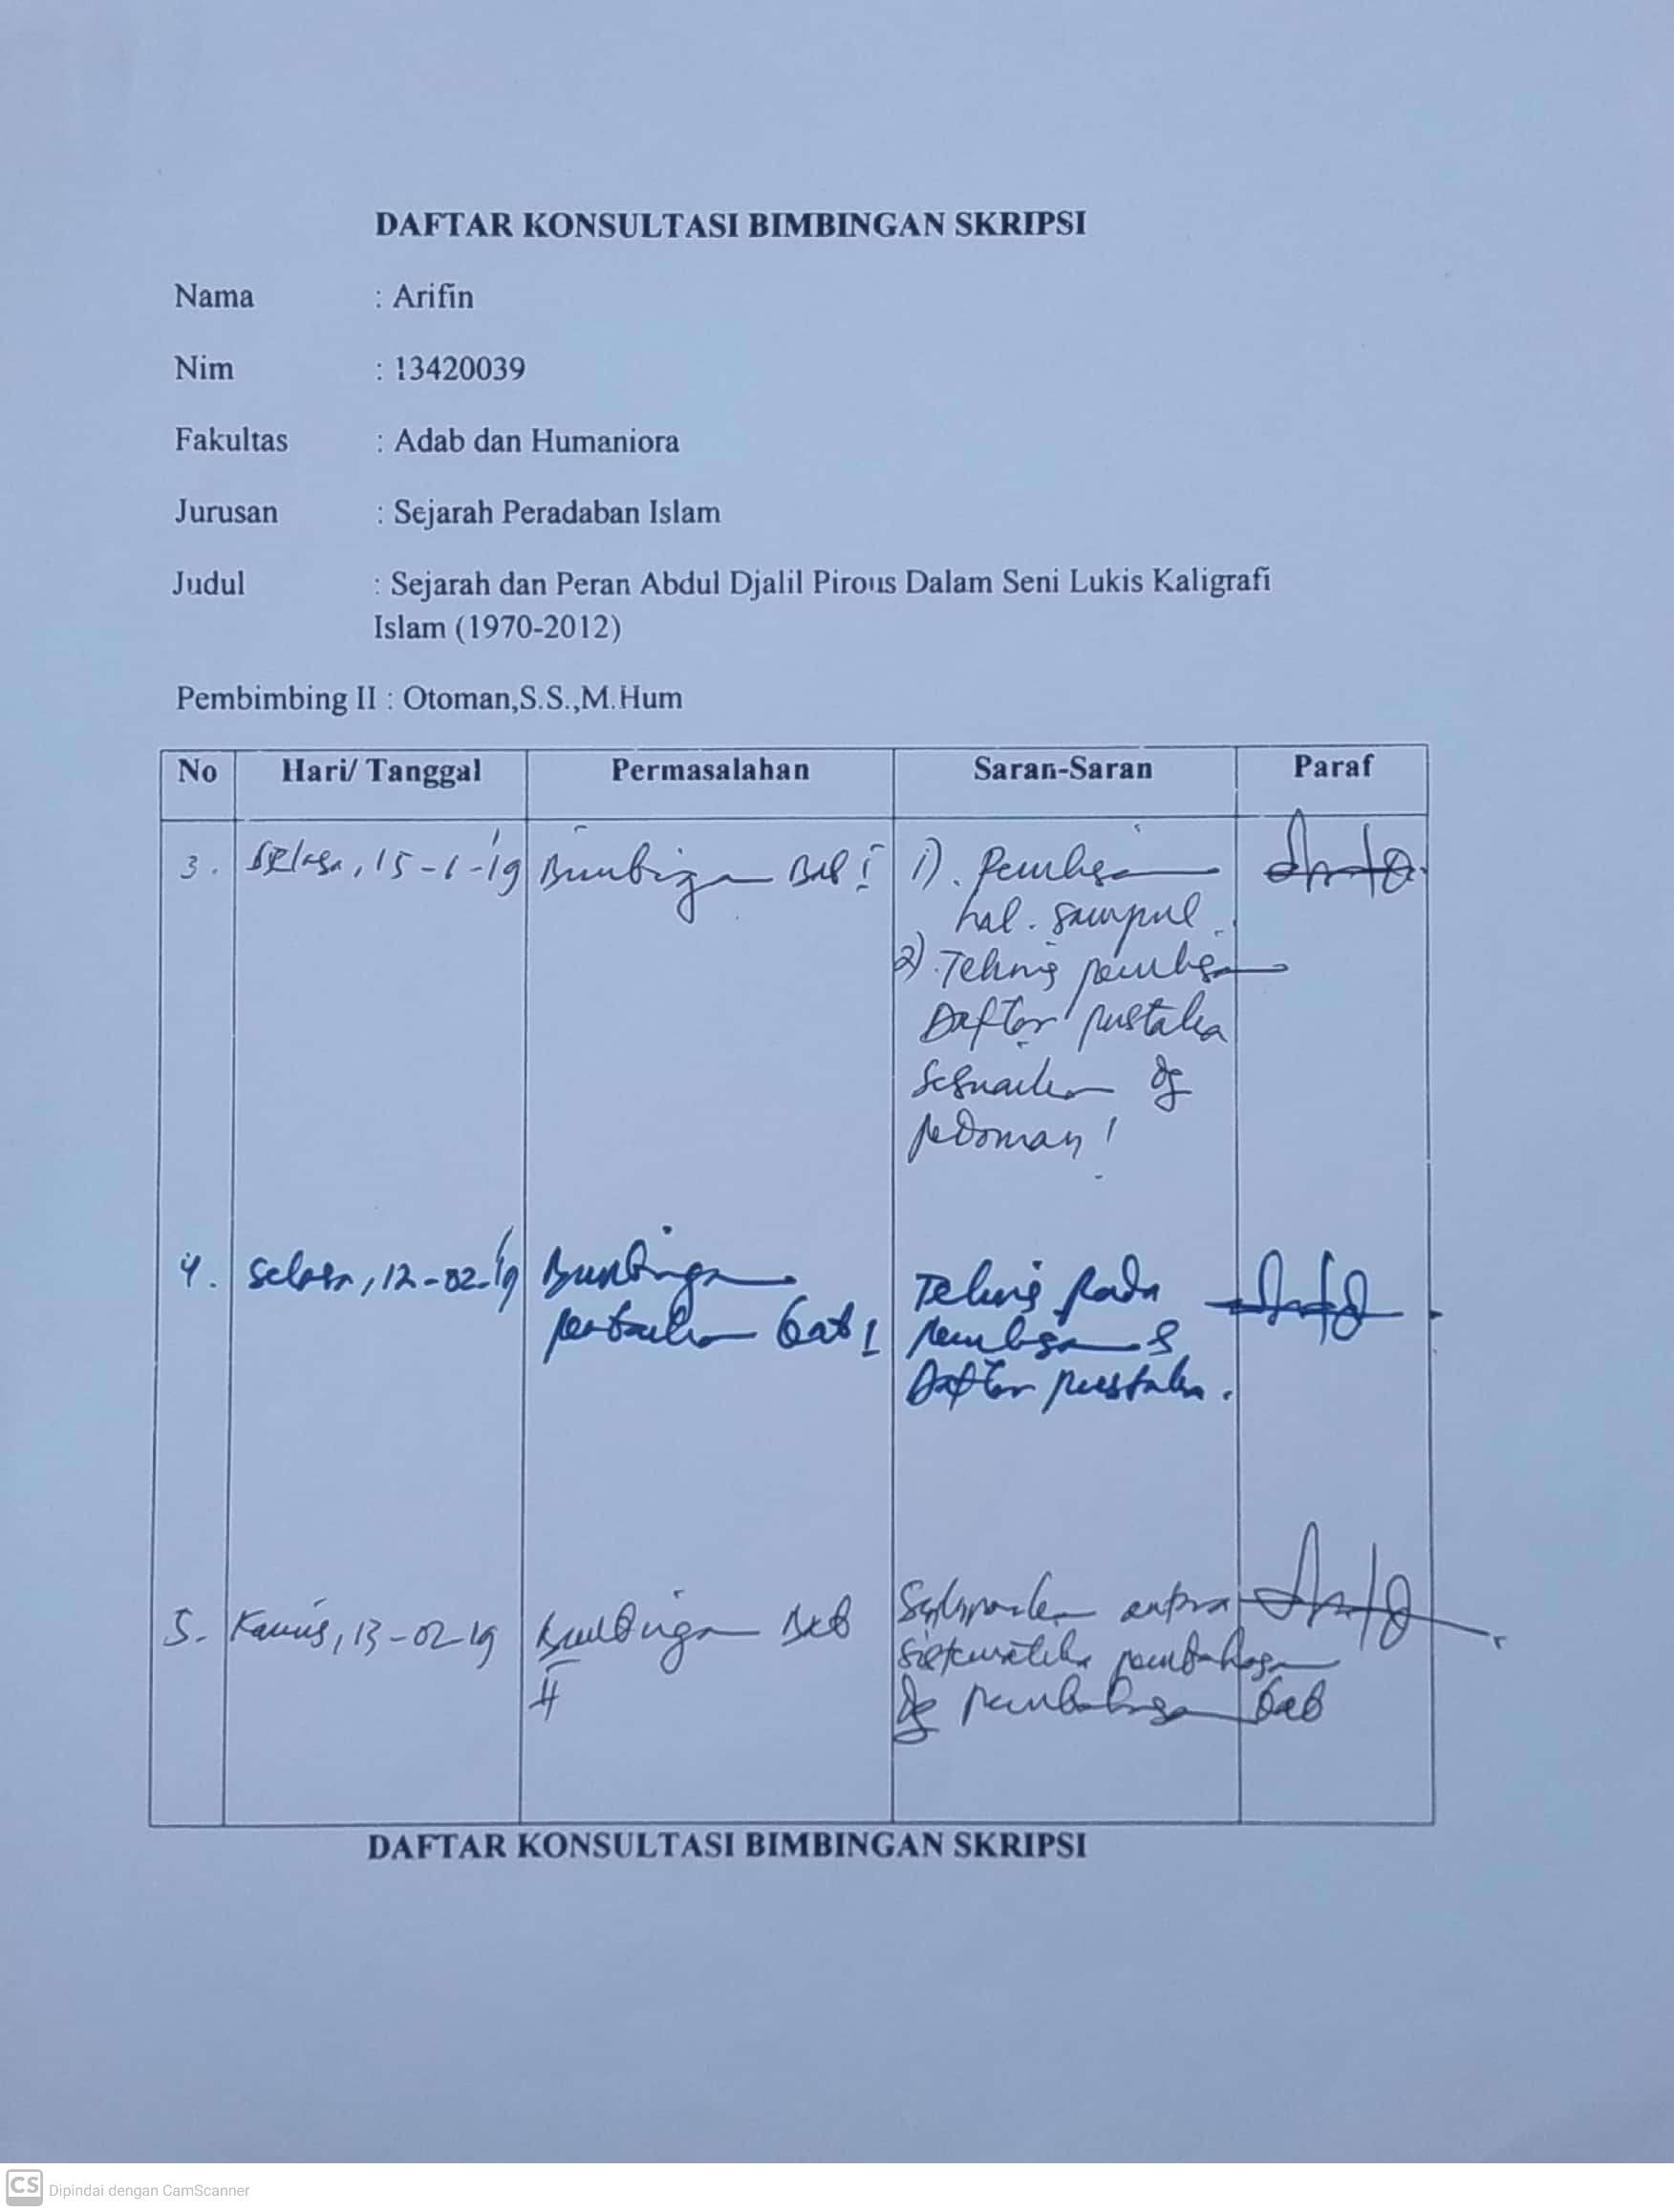 DAFTAR KONSULTASI BIMBINGAN SKRIPSI
Nama : Arifin
Nim : 13420039
Fakultas : Adab dan Humaniora
Jurusan : Sejarah Peradaban Islam
Judul : Sejarah dan Peran Abdul Djalil Pirous Dalam Seni Lukis Kaligrafi
Islam (1970-2012)
Pembimbing II : Otoman,S.S.,M.Hum
No Hari/ Tanggal Permasalahan Saran-Saran Paraf
3. Selasa, 15-1-'19 Bimbingan Bab I 1). Penulisan
hal. sampul.
2). Teknis penulisan
Daftar pustaka
Sesuaikan dg
pedoman!
4. Selasa, 12-02-'19 Bimbingan Teknis pada
perbaikan bab I penulisan
Daftar pustaka.
5. Kamis, 13-02-19 Bimbingan Bab antara
II sistematika pembahasan
dg pembahasan bab
DAFTAR KONSULTASI BIMBINGAN SKRIPSI
CS Dipindai dengan CamScanner